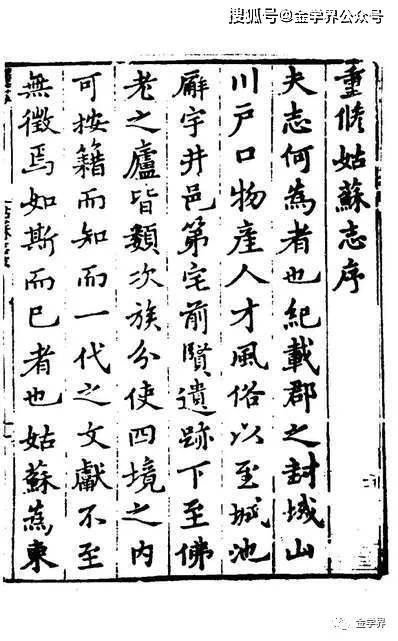 搜狐号@金学界公众号
重脩姑蘇志序
夫志何為者也紀載郡之封域山
川戸口物產人才風俗以至城池
廨宇井邑第宅前賢遺跡下至佛
老之廬皆類次族分使四境之内
可按籍而知而一代之文獻不至
無徵焉如斯而已者也姑蘇為東
金学界